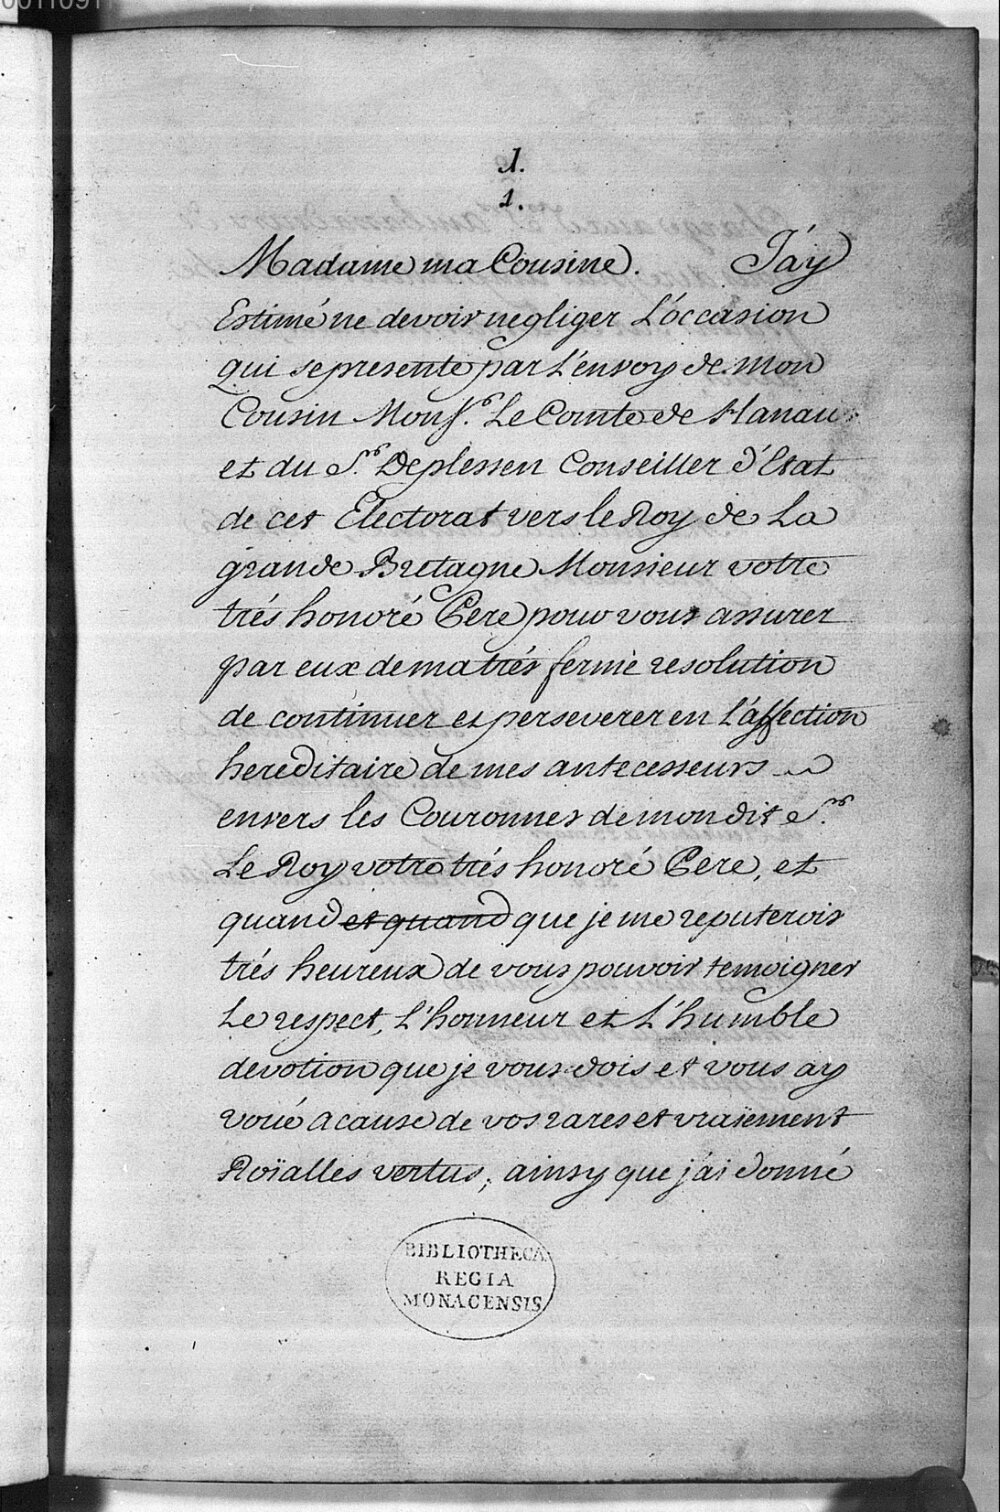 1.
1.
Madame ma Cousine. J'áy
Estimé ne devoir negliger L'occasion
qui se presente par L'envoy de mon
Cousin Mons.r Le Comte de Hanau
et du S.r Deplessen Conseiller d'Etat
de cet Electorat vers le Roy de La
grande Bretagne Monsieur votre
trés honoré Pere pour vous assurer
par eux de ma trés ferme resolution
de continuer et perseverer en L'affection
hereditaire de mes antecesseurs
envers les Couronnes de mondit S.r
Le Roy votre trés honoré Pere, et
quand et quand que je me reputerois
trés heureux de vous pouvoir temoigner
Le respect, L'honneur et L'humble
devotion que je vous dois et vous ay
voué a cause de vos rares et vraïement
Roïalles vertus; ainsy que j'ai donné
BIBLIOTHECA
REGIA
MONACENSIS